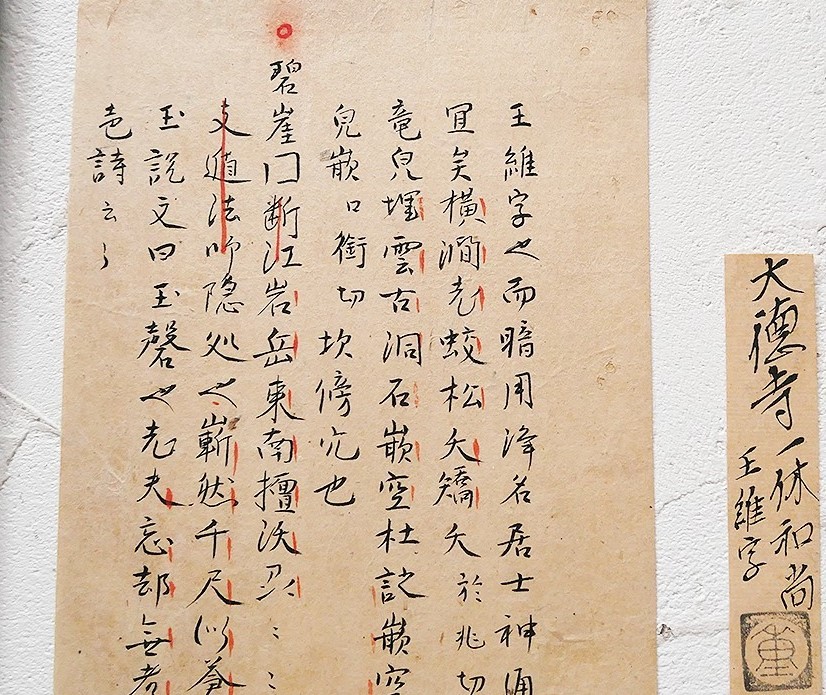 大德寺一休和尚
王維字
王維字也而暗用浄名居士神通
冝矣横澗老蛟松夭矯夭於兆切
竜皃埋雲古洞石嵌空杜嵌空
皃嵌口銜切坎傍穴也
碧崖门断江岩岳東南擅沃
支遁法師隠処也嶄然千尺似蒼
玉説文曰玉磬也老夫忘却無者
詩云々